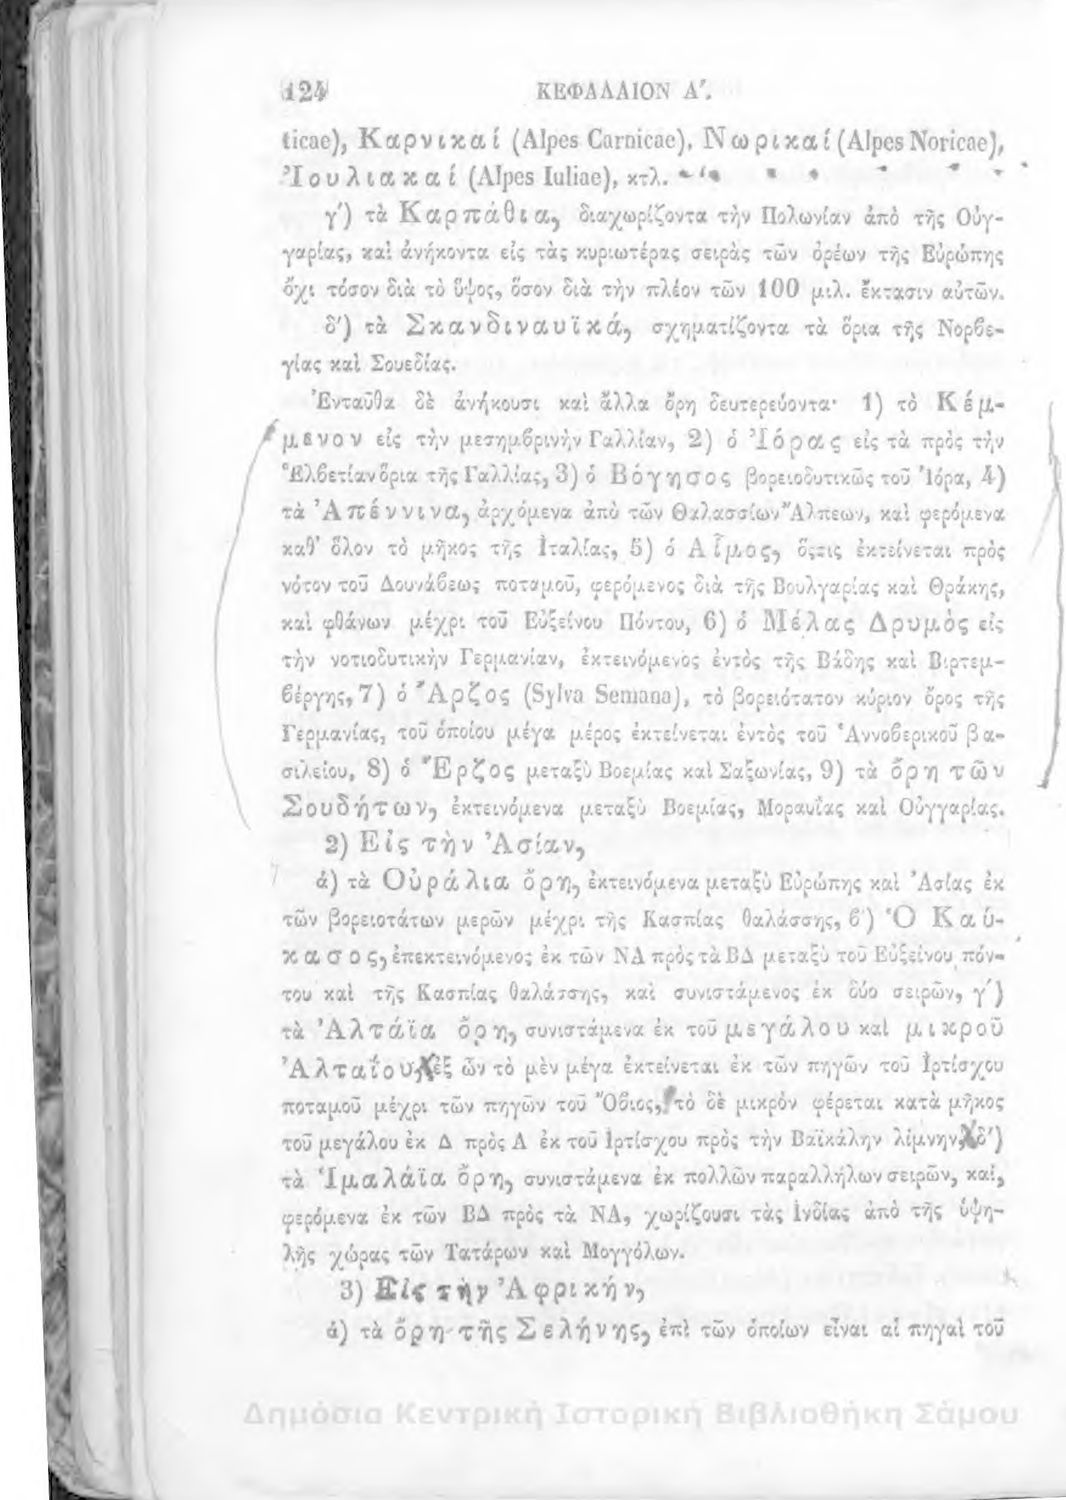 124 ΚΕΦΑΛΑΙΟΝ Α΄.
ticae), Καρνικαί (Alpes Carnicae), Νωρικαί (Alpes Noricae),
Ἰουλιακαί (Alpes Iuliae), κτλ.
γ΄) τὰ Καρπάθια, διαχωρίζοντα τὴν Πολωνίαν ἀπὸ τῆς Οὑγ-
γαρίας, καὶ ἀνήκοντα εἰς τὰς κυριωτέρας σειρὰς τῶν ὀρέων τῆς Εὐρώπης
ὄχι τόσον διὰ τὸ ὕψος, ὅσον διὰ τὴν πλέον τῶν 100 μιλ. ἔκτασιν αὐτῶν.
δ΄) τὰ Σκανδιναυϊκά, σχηματίζοντα τὰ ὅρια τῆς Νορβε-
γίας καὶ Σουεδίας.
Ἐνταῦθα δὲ ἀνήκουσι καὶ ἄλλα ὄρη δευτερεύοντα· 1) τὸ Κέμ-
μενον εἰς τὴν μεσημβρινὴν Γαλλίαν, 2) ὁ Ἰόρας εἰς τὰ πρὸς τὴν
Ἑλβετίαν ὅρια τῆς Γαλλίας, 3) ὁ Βόγησος βορειοδυτικῶς τοῦ Ἰόρα, 4)
τὰ Ἀπέννινα, ἀρχόμενα ἀπὸ τῶν Θαλασσίων Ἄλπεων, καὶ φερόμενα
καθ’ ὅλον τὸ μῆκος τῆς Ἰταλίας, 5) ὁ Αἷμος, ὅςτις ἐκτείνεται πρὸς
νότον τοῦ Δουνάβεως ποταμοῦ, φερόμενος διὰ τῆς Βουλγαρίας καὶ Θράκης,
καὶ φθάνων μέχρι τοῦ Εὐξείνου Πόντου, 6) ὁ Μέλας Δρυμὸς εἰς
τὴν νοτιοδυτικὴν Γερμανίαν, ἐκτεινόμενος ἐντὸς τῆς Βάδης καὶ Βιρτεμ-
βέργης, 7) ὁ Ἄρζος (Sylva Semana), τὸ βορειότατον κύριον ὄρος τῆς
Γερμανίας, τοῦ ὁποίου μέγα μέρος ἐκτείνεται ἐντὸς τοῦ Ἀννοβερικοῦ βα-
σιλείου, 8) ὁ Ἔρζος μεταξὺ Βοεμίας καὶ Σαξωνίας, 9) τὰ ὄρη τῶν
Σουδήτων, ἐκτεινόμενα μεταξὺ Βοεμίας, Μοραυΐας καὶ Οὑγγαρίας.
2) Εἰς τὴν Ἀσίαν,
ά) τὰ Οὐράλια ὄρη, ἐκτεινόμενα μεταξὺ Εὐρώπης καὶ Ἀσίας ἐκ
τῶν βορειοτάτων μερῶν μέχρι τῆς Κασπίας θαλάσσης, β΄) Ὁ Καύ-
κασος, ἐπεκτεινόμενος ἐκ τῶν ΝΔ πρὸς τὰ ΒΔ μεταξὺ τοῦ Εὐξείνου πόν-
του καὶ τῆς Κασπίας θαλάσσης, καὶ συνιστάμενος ἐκ δύο σειρῶν, γ΄)
τὰ Ἀλτάϊα ὄρη, συνιστάμενα ἐκ τοῦ μεγάλου καὶ μικροῦ
Ἀλταΐου, ἐξ ὧν τὸ μὲν μέγα ἐκτείνεται ἐκ τῶν πηγῶν τοῦ Ἰρτίσχου
ποταμοῦ μέχρι τῶν πηγῶν τοῦ Ὄβιος, τὸ δὲ μικρὸν φέρεται κατὰ μῆκος
τοῦ μεγάλου ἐκ Δ πρὸς Α ἐκ τοῦ Ἰρτίσχου πρὸς τὴν Βαϊκάλην λίμνην, δ΄)
τὰ Ἱμαλάϊα ὄρη, συνιστάμενα ἐκ πολλῶν παραλλήλων σειρῶν, καί,
φερόμενα ἐκ τῶν ΒΔ πρὸς τὰ ΝΔ, χωρίζουσι τὰς Ἰνδίας ἀπὸ τῆς ὑψη-
λῆς χώρας τῶν Τατάρων καὶ Μογγόλων.
3) Εἰς τὴν Ἀφρικήν,
ά) τὰ ὄρη τῆς Σελήνης, ἐπὶ τῶν ὁποίων εἶναι αἱ πηγαὶ τοῦ
Δημόσια Κεντρική Ιστορική Βιβλιοθήκη Σάμου